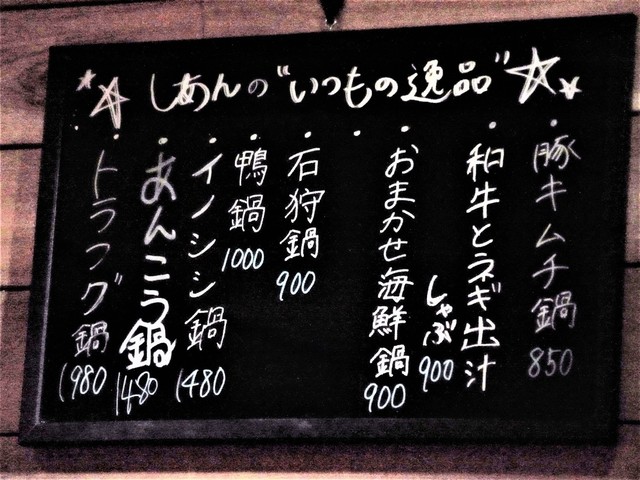 しあんの"いつもの逸品"
・豚キムチ鍋 850
・和牛とネギ出汁しゃぶ 900
・おまかせ海鮮鍋 900
・
・石狩鍋 900
・鴨鍋 1000
・イノシシ鍋 1480
・あんこう鍋 1480
・トラフグ鍋 1980